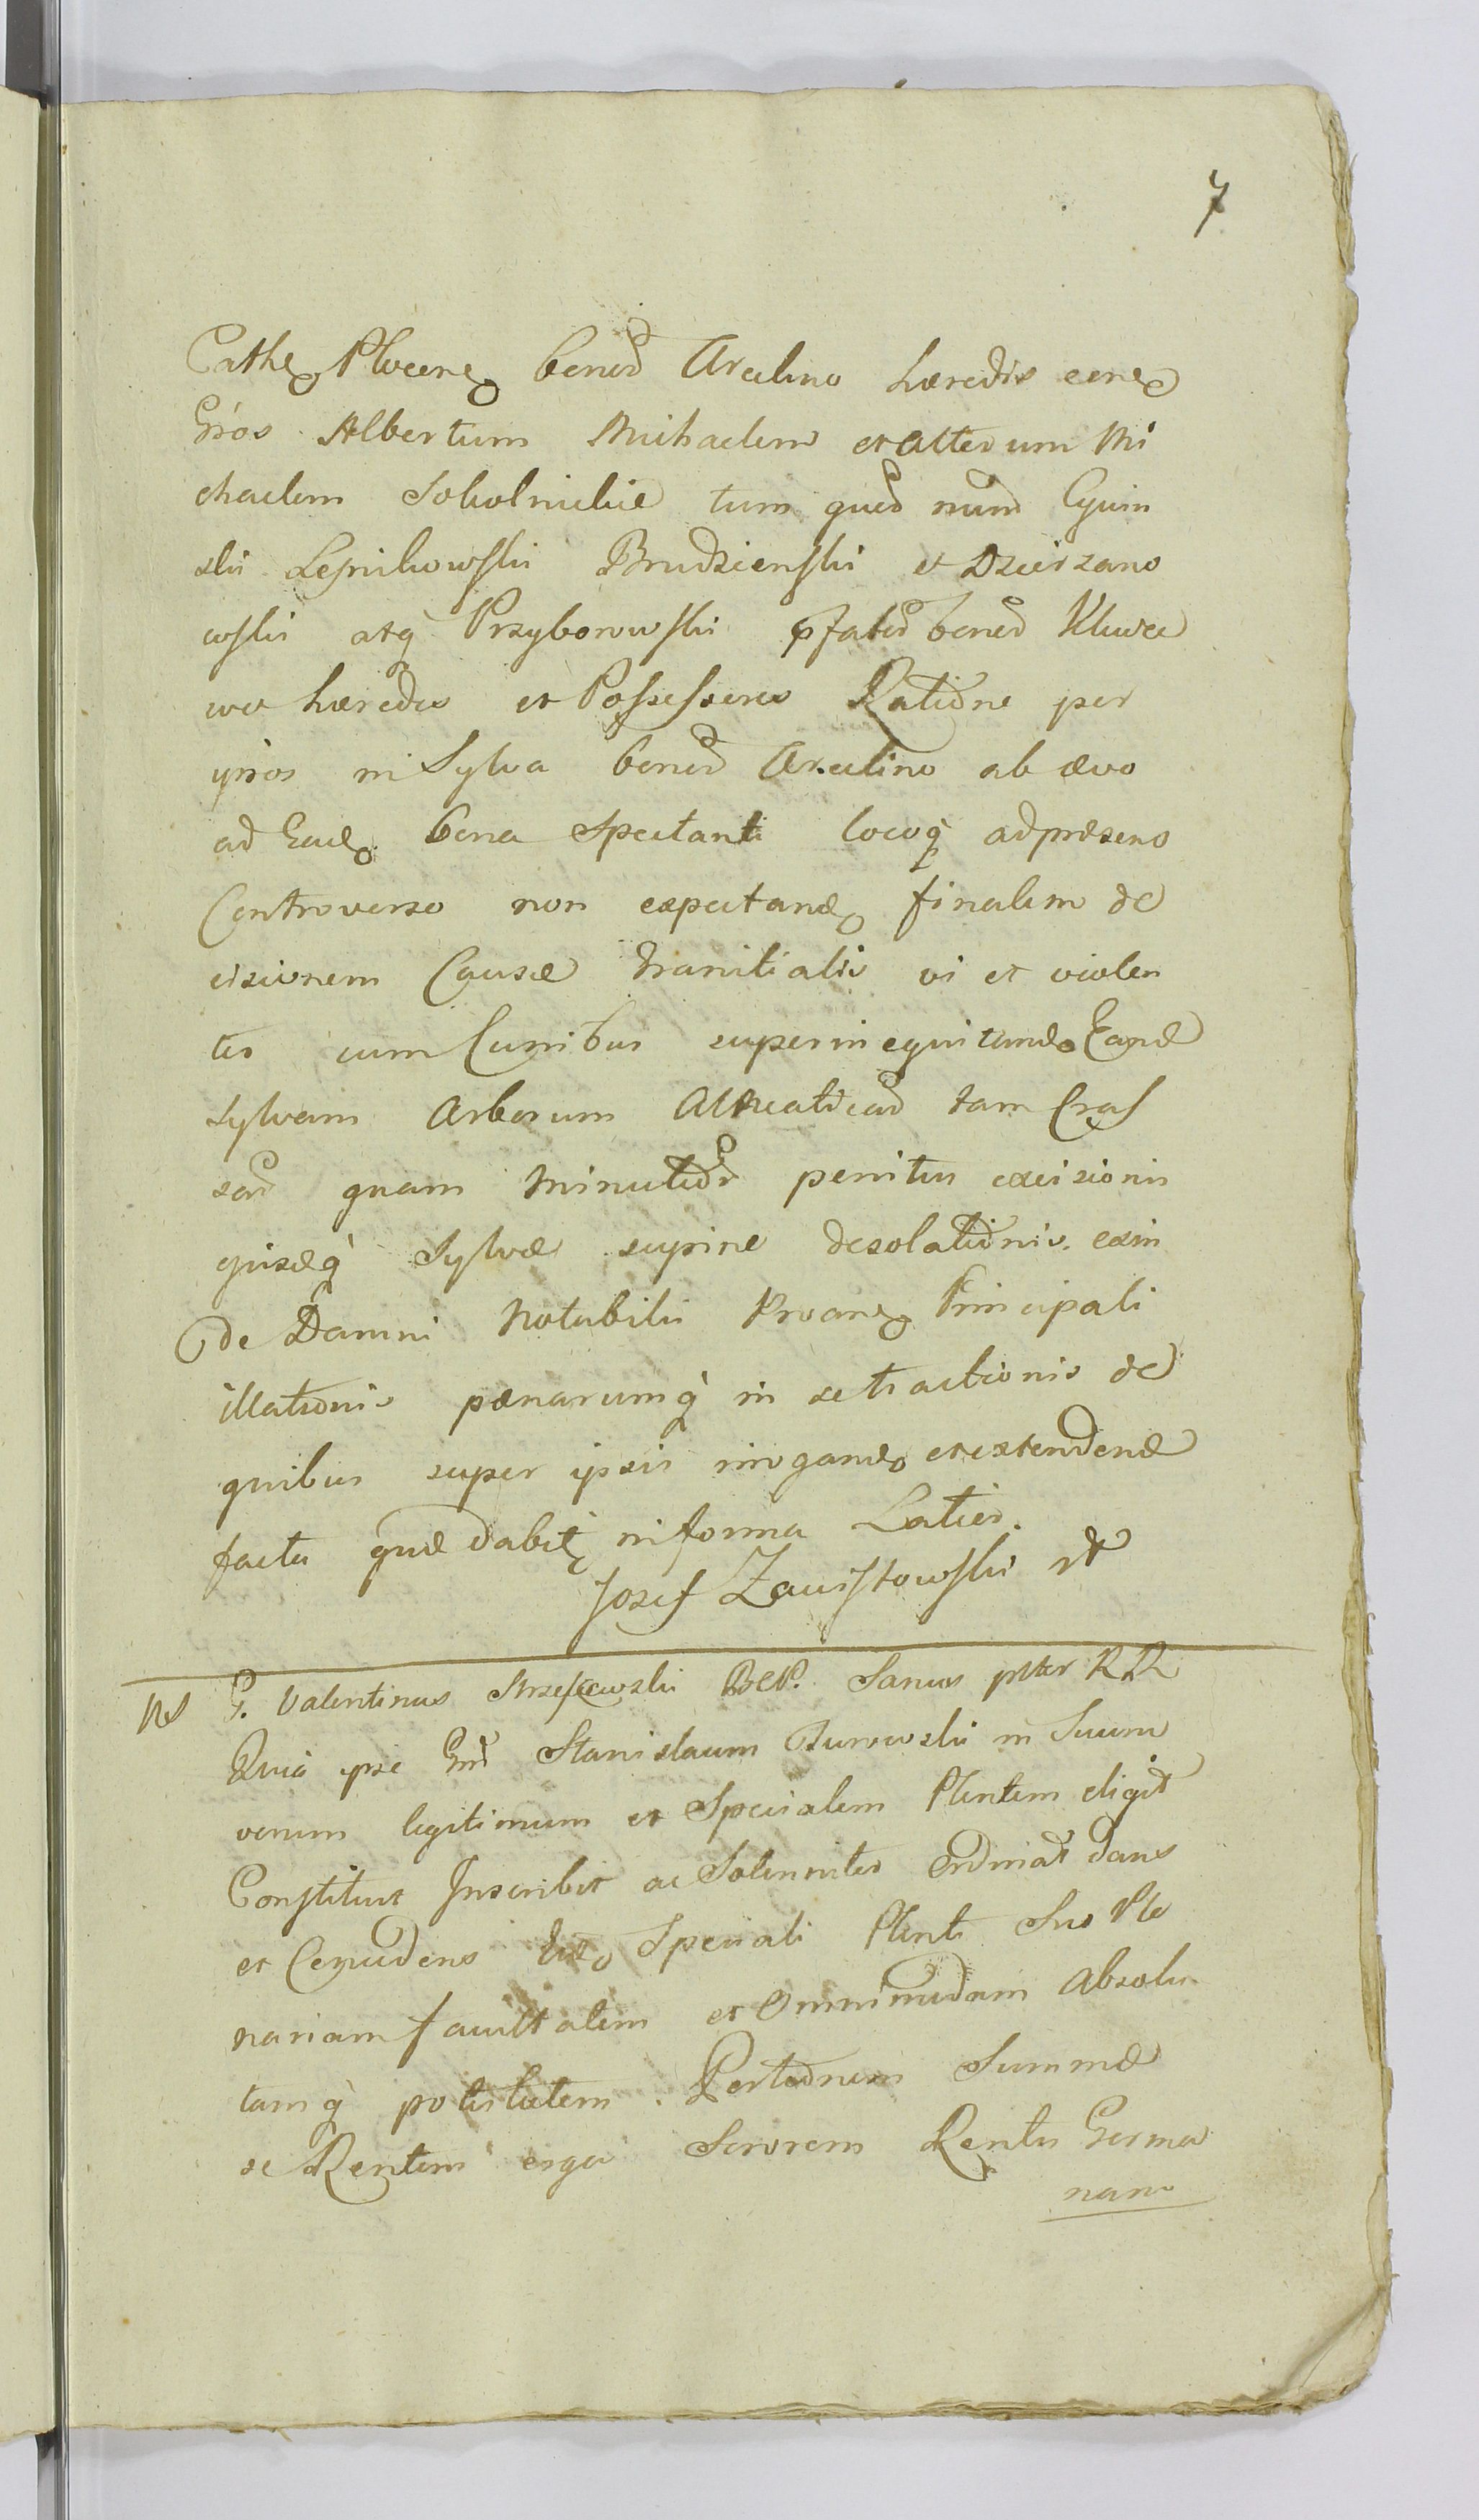 7
Cathe Plocene bonor Arcelino hæredis eene
Gnos Albertum Michaelem et alterum Mi
chaelem Sokolnickie tum quod
ski Lepnikowski Brudzienski et Dzierzano
wski atq Przyborowski pfator bonor Kluwce
wo hæredes et Possessores Ratione per
ipsos in Sylva bonor Arcelino ab ævo
ad Ead bona Spectanti locoq ad præsens
Controverso non expectand finalem de
cisionem Causæ Granitialis vi et violen
ter cum Curribus superinequitand Eand
sylvam Arborum tam Cras
sar quam Minutior penitus excisionis
ipsæq Sylvæ supine desolationis exin
de Damni Notabilis Proane Principali
illationis pænarumq in se tractionis de
quibus super ipsis irrogand et extendend
facta quæ dabit in forma Latior.
Josef Zawistowski
NS G. Valentinus BCP. Sanus ptter RR
Quia ipse Gnm Stanislaum Burowski in Suum
verum legitimum et Specialem Plentem eligit
Constituit Inscribit ac Solenniter Ordinat dans
et Concedens Eid Speciali Plenti Suo Ple
nariam facultatem et Omnimodam Absolu
tamq potestatem. Portionem Summæ
se Rentem erga Sororem Rentis Germa
nam